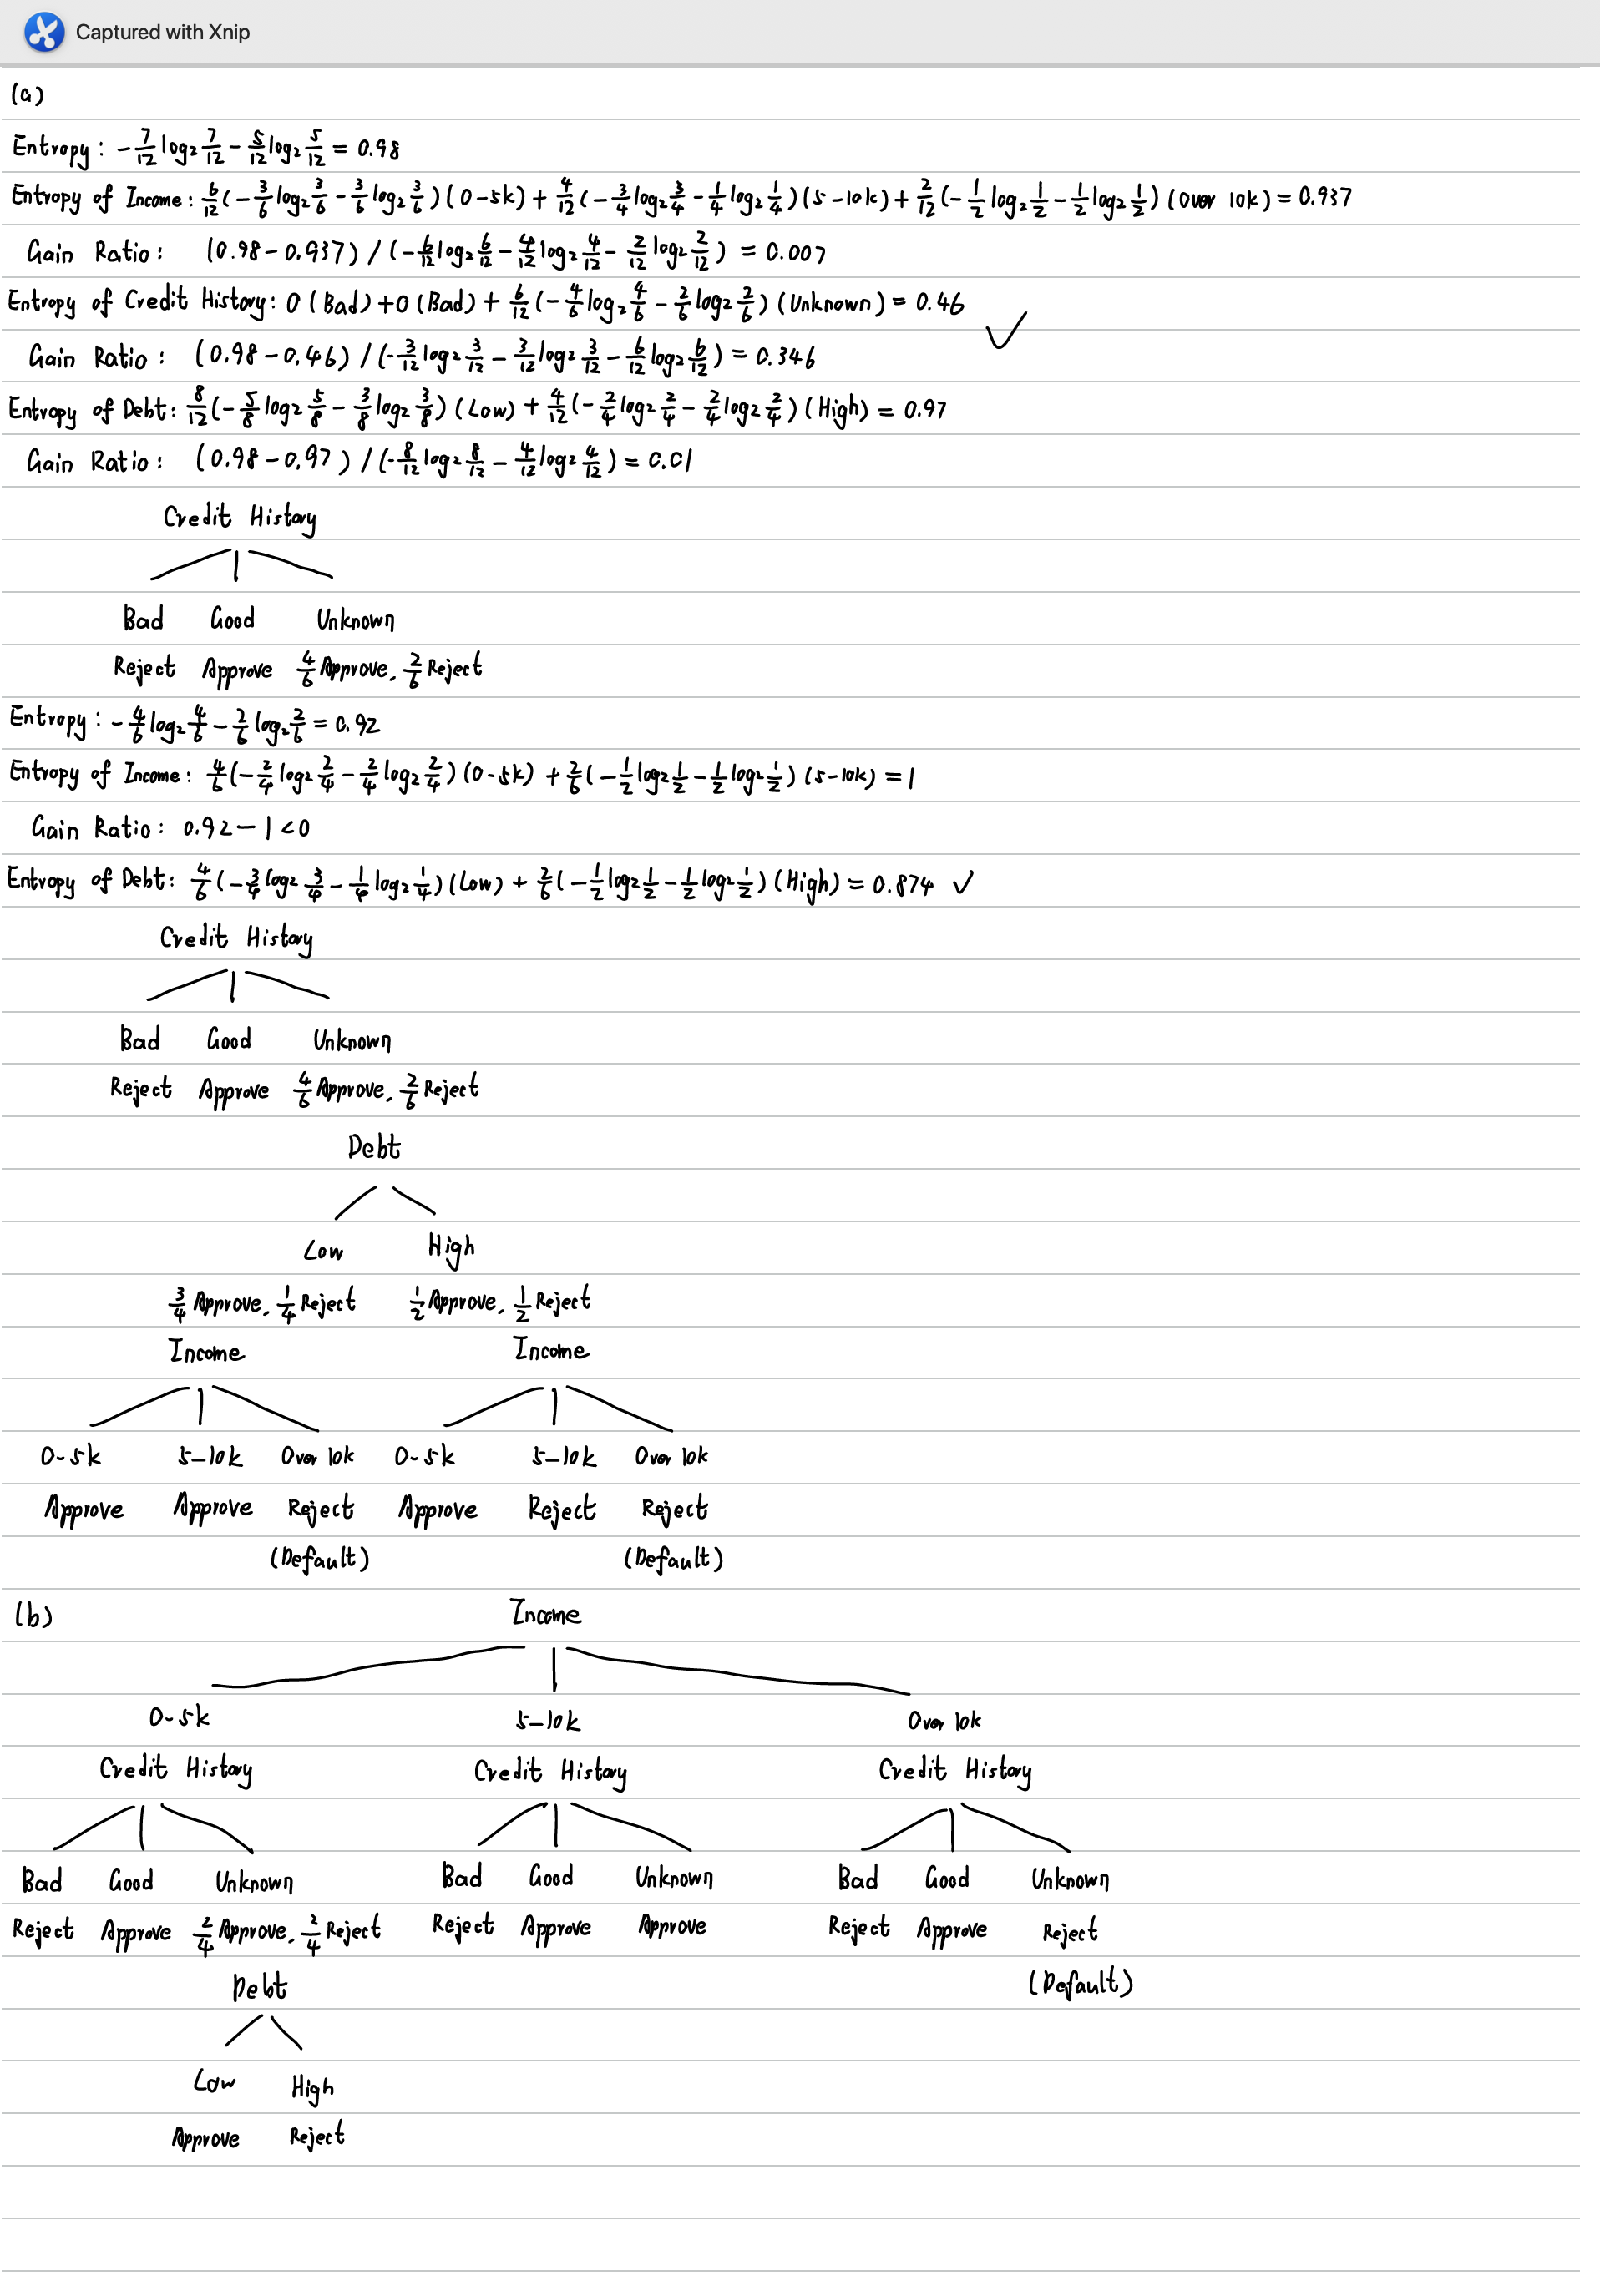 Captured with Xnip
(a)
Entropy: -7/12 log₂ 7/12 - 5/12 log₂ 5/12 = 0.98
Entropy of Income: 6/12(-3/6 log₂ 3/6 - 3/6 log₂ 3/6)(0-5k) + 4/12(-3/4 log₂ 3/4 - 1/4 log₂ 1/4)(5-10k) + 2/12(-1/2 log₂ 1/2 - 1/2 log₂ 1/2)(Over 10k) = 0.937
Gain Ratio: (0.98-0.937)/(-6/12 log₂ 6/12 - 4/12 log₂ 4/12 - 2/12 log₂ 2/12) = 0.007
Entropy of Credit History: 0(Bad)+0(Bad)+ 6/12(-4/6 log₂ 4/6 - 2/6 log₂ 2/6)(Unknown) = 0.46
Gain Ratio: (0.98-0.46)/(-3/12 log₂ 3/12 - 3/12 log₂ 3/12 - 6/12 log₂ 6/12) = 0.346 ✓
Entropy of Debt: 8/12(-5/8 log₂ 5/8 - 3/8 log₂ 3/8)(Low) + 4/12(-2/4 log₂ 2/4 - 2/4 log₂ 2/4)(High) = 0.97
Gain Ratio: (0.98-0.97)/(-8/12 log₂ 8/12 - 4/12 log₂ 4/12) = 0.01
Credit History
Bad Good Unknown
Reject Approve 4/6 Approve, 2/6 Reject
Entropy: -4/6 log₂ 4/6 - 2/6 log₂ 2/6 = 0.92
Entropy of Income: 4/6(-2/4 log₂ 2/4 - 2/4 log₂ 2/4)(0-5k) + 2/6(-1/2 log₂ 1/2 - 1/2 log₂ 1/2)(5-10k) = 1
Gain Ratio: 0.92-1<0
Entropy of Debt: 4/6(-3/4 log₂ 3/4 - 1/4 log₂ 1/4)(Low) + 2/6(-1/2 log₂ 1/2 - 1/2 log₂ 1/2)(High) = 0.874 ✓
Credit History
Bad Good Unknown
Reject Approve 4/6 Approve, 2/6 Reject
Debt
Low High
3/4 Approve, 1/4 Reject 1/2 Approve, 1/2 Reject
Income Income
0-5k 5-10k Over 10k 0-5k 5-10k Over 10k
Approve Approve Reject Approve Reject Reject
(Default) (Default)
(b) Income
0-5k 5-10k Over 10k
Credit History Credit History Credit History
Bad Good Unknown Bad Good Unknown Bad Good Unknown
Reject Approve 2/4 Approve, 2/4 Reject Reject Approve Approve Reject Approve Reject
Debt (Default)
Low High
Approve Reject